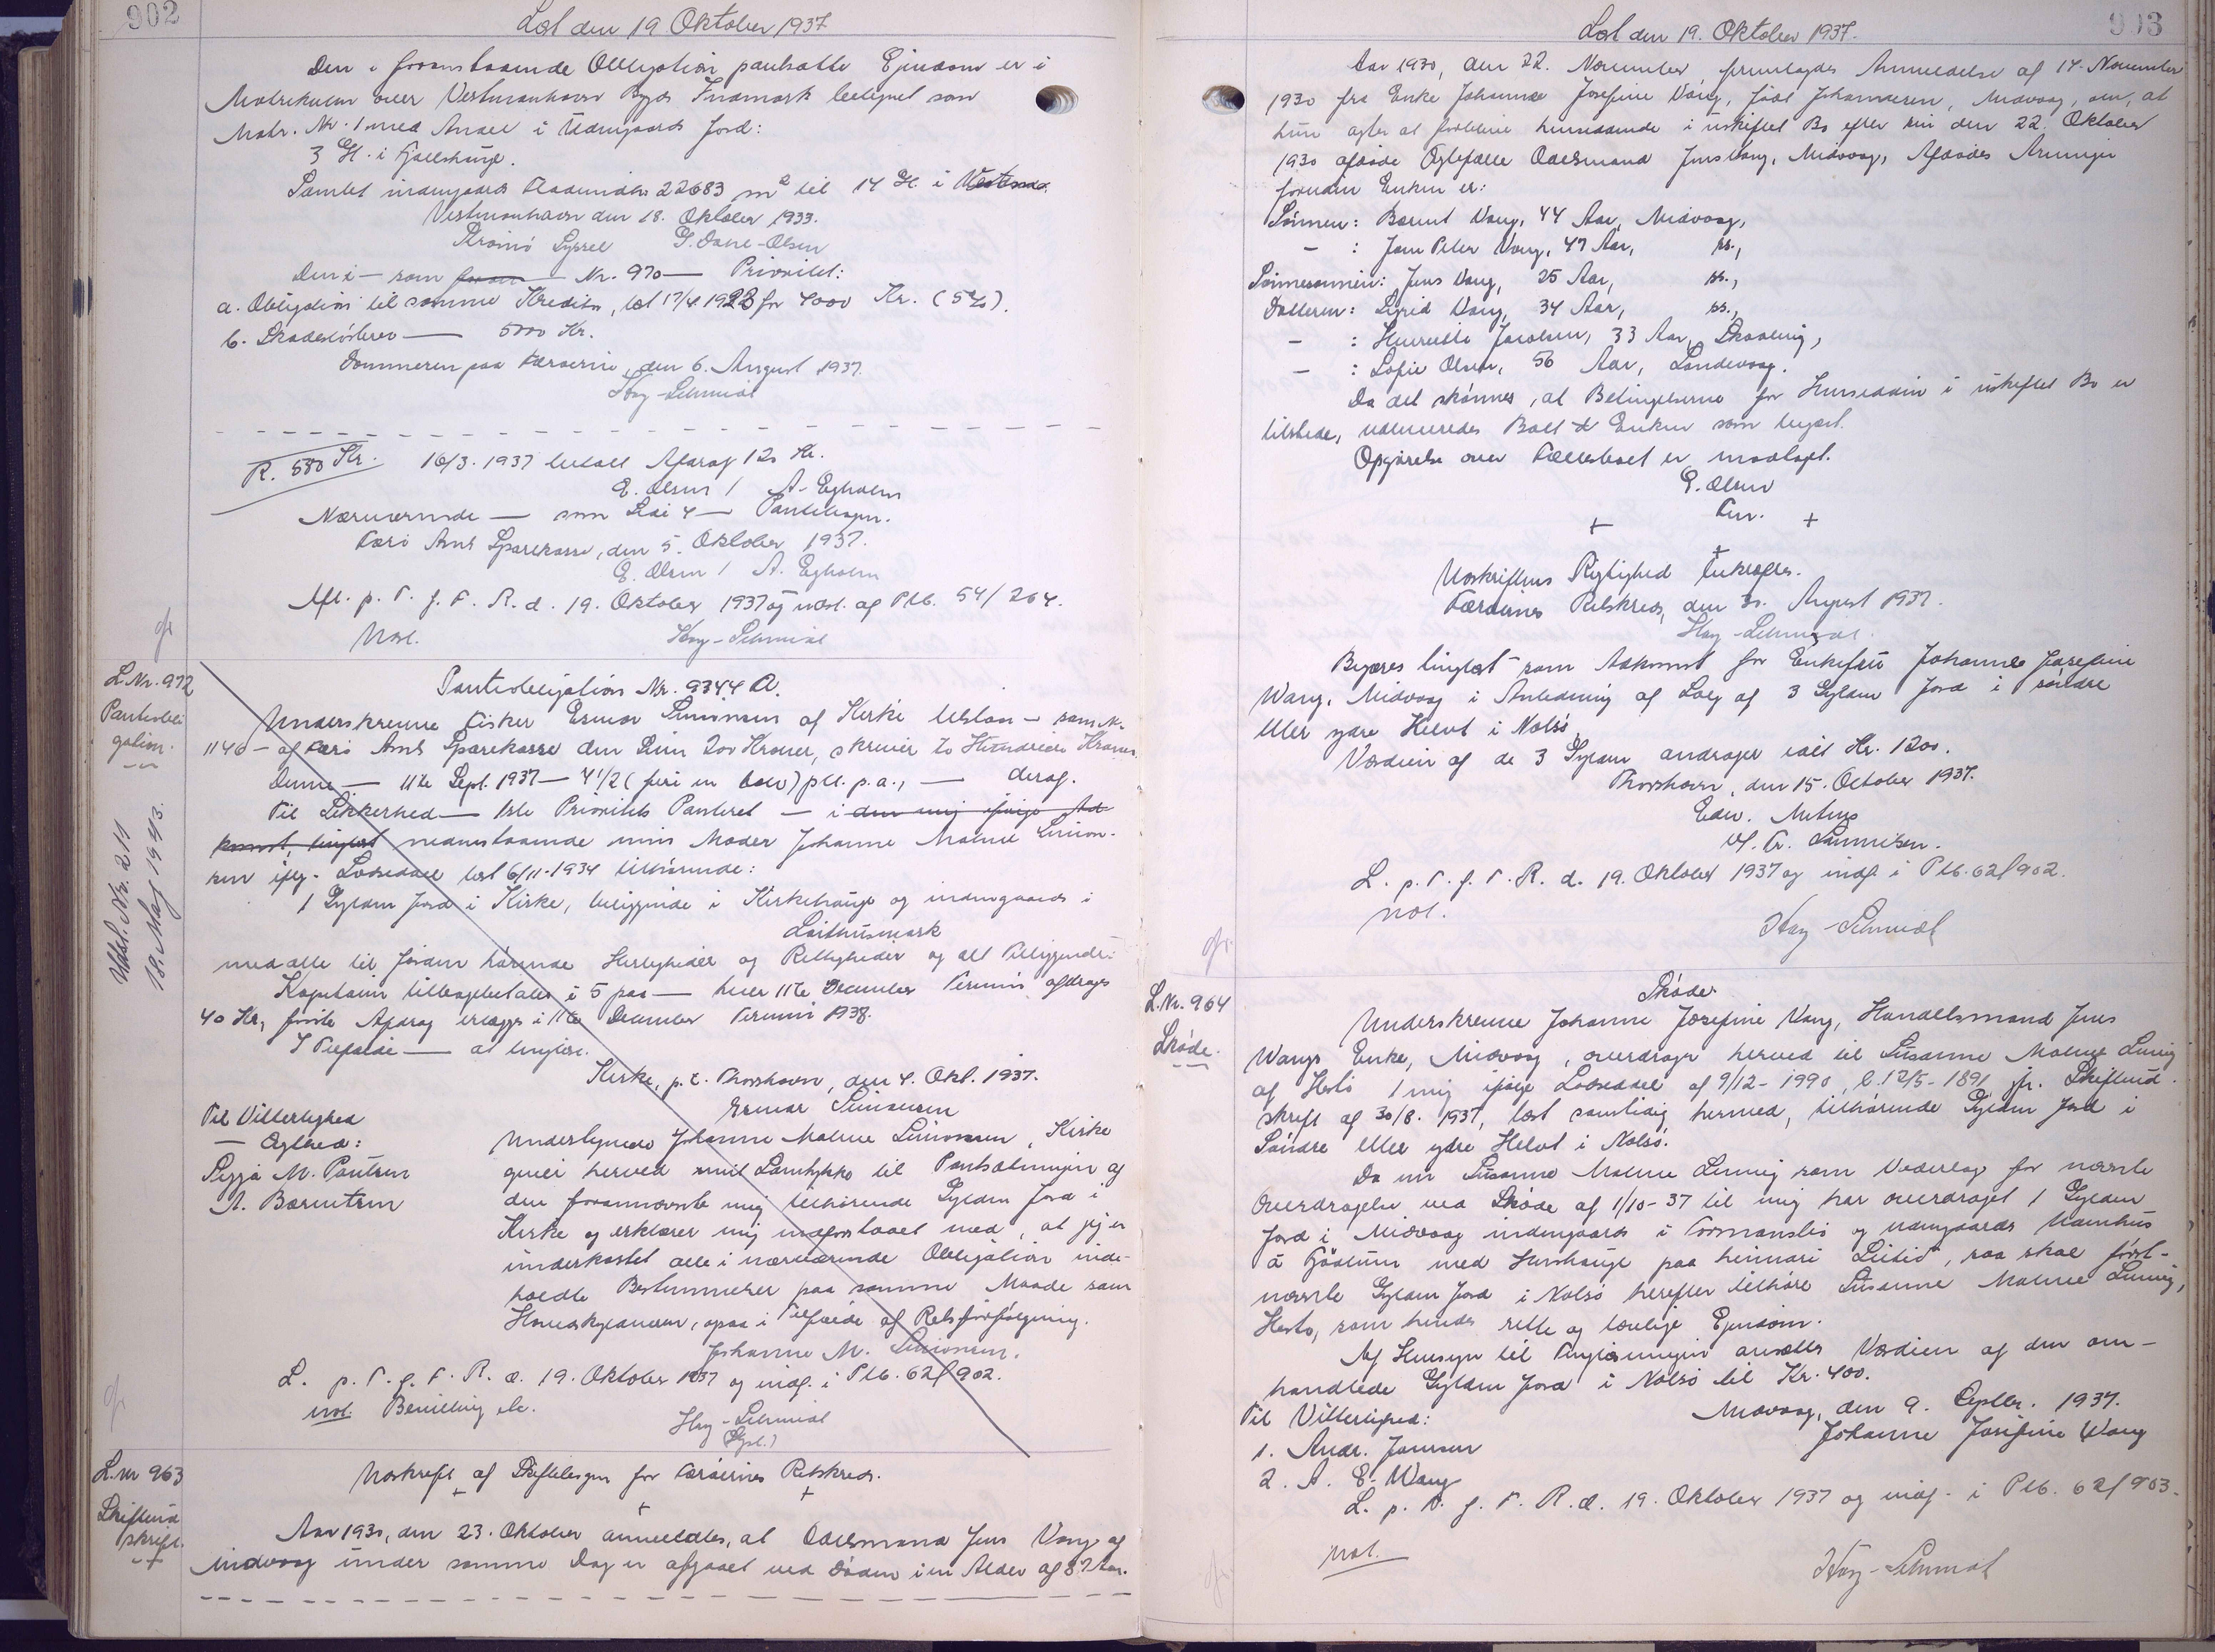 902
Læst den 19 Oktober 1937
Den i foranstaaende Obligation pantsatte Ejendom er i
Matrikulen over Vestmanhavn Bygds Indmark betegnet som
Matr. Nr. 1 med Andel i Udengaards Jord:
3 Gl. i Fjallshauge.
Samlet indengaards Fladeindh. 22683 m² til 14 Gl. i
Vestmanhavn den 18. Oktober 1933.
Strømø Syssel
Den i — som — Nr. 970 — Prioritet:
a. Obligation til samme Kreditor, læst 17/4 1923 for 4000 Kr. (5%).
b. Skadesløsbrev — 5000 Kr.
Dommeren paa Færøerne, den 6. August 1937.
Høg-Schmidt
R. 880 Kr. 16/3. 1937 betalt Afdrag 120 Kr.
E. Olsen / A. Egholm
Nærværende — som Lai 4 — Pantebogen.
Færø Amts Sparekasse, den 5. Oktober 1937.
E. Olsen / A. Egholm
Afl. p. T. f. F. R. d. 19. Oktober 1937 og udsl. af Ptb. 54/264.
Not. Høg-Schmidt
L. Nr. 972
Panteobli
gation.
Udsl. Nr. 211
18. Maj 1943.
Panteobligation Nr. 9344 A.
Underskrevne Fisker Ermar Simonsen af Kirke — som Nr.
1140 — af Færø Amts Sparekasse den Sum 200 Kroner, skriver To Hundrede Kroner
Denne — 11te Sept. 1937 — 4 1/2 (fire en halv) pCt. p.a., — deraf.
Til Sikkerhed — 1ste Prioritets Panteret — i den mig ifølge Ad
komst, tinglæst nedenstaaende min Moder Johanne Malene Simon-
sen iflg. Lodseddel læst 6/11-1934 tilhørende:
1 Gylden Jord i Kirke, beliggende i Kirkehauge og indengaards i
Laithusmark
med alle til Jorden hørende Herligheder og Rettigheder og alt Tilliggende:
Kapitalen tilbagebetales i 5 paa — hver 11te December Termin afdrages
40 Kr., første Afdrag erlægges i 11te December Termin 1938.
I Tilfælde — at tinglæse.
Kirke, p.t. Thorshavn, den 4. Okt. 1937.
Ermar Simonsen
Til Vitterlighed
— Ægthed:
Sigga M. Poulsen
A. Bærentsen
Undertegnede Johanne Malene Simonsen, Kirke
giver herved mit Samtykke til Pantsætningen af
den forannævnte mig tilhørende Gylden Jord i
Kirke og erklærer mig indforstaaet med, at jeg er
underkastet alle i nærværende Obligation inde-
holdte Bestemmelser paa samme Maade som
Hovedskyldneren, ogsaa i Tilfælde af Retsforfølgning.
Johanne M. Simonsen.
L. p. T. f. F. R. d. 19. Oktober 1937 og indf. i Ptb. 62/902.
Not. Bevilling etc.
Høg-Schmidt
L. Nr 963
Skifteud
skrift.
Udskrift af Skiftebogen for Færøernes Retskreds.
Aar 1930, den 23. Oktober anmeldtes, at Odelsmand Jens Vang af
Midvaag under samme Dag er afgaaet ved Døden i en Alder af 87 Aar.
Læst den 19. Oktober 1937.
903
Aar 1930, den 22. November fremlagdes Anmeldelse af 17. November
1930 fra Enke Johanne Josefine Vang, født Johannesen, Midvaag, om, at
hun agter at forblive hensiddende i uskiftet Bo efter sin den 22. Oktober
1930 afdøde Ægtefælle Odelsmand Jens Vang, Midvaag, Afdødes Arvinger
foruden Enken er:
Sønnen: Berint Vang, 44 Aar, Midvaag,
— : Jens Peter Vang, 47 Aar, ss.,
Sønnesønnen: Jens Vang, 25 Aar, ss.,
Datteren: Sigrid Vang, 34 Aar, ss.,
— : Henriette Jacobsen, 33 Aar,
— : Sofie Olsen, 56 Aar, Sandevaag.
Da det skønnes, at Betingelserne for Hensidden i uskiftet Bo er
tilstede, udleveredes Boet t. Enken som begært.
Opgørelse over Fællesboet er modtaget.
E. Olsen
Udskriftens Rigtighed bekræftes.
Færøernes Retskreds, den 30. August 1937.
Høg-Schmidt.
Begæres tinglæst som Adkomst for Enkefru Johanne Josefine
Wang, Midvaag i Anledning af Salg af 3 Gylden Jord i søndre
eller ydre Helvt i Nolsø.
Værdien af de 3 Gylden andrager ialt Kr. 1200.
Thorshavn, den 15. October 1937.
Edw. Mitens
L. p. T. f. F. R. d. 19. Oktober 1937 og indf. i Ptb. 62/902.
Not.
Høg-Schmidt
L. Nr. 964
Skøde.
Skøde
Underskrevne Johanne Josefine Vang, Handelsmand Jens
Wangs Enke, Midvaag, overdrager herved til Susanne Malene
af Hestø 1 mig ifølge Lodseddel af 9/12-1990, l. 12/5-1891 jfr. Skifteud-
skrift af 30/8. 1937, læst samtidig hermed, tilhørende Gylden Jord i
Søndre eller ydre Helvt i Nolsø.
Da nu Susanne Malene som Vederlag for nævnte
Overdragelse ved Skøde af 1/10-37 til mig har overdraget 1 Gylden
Jord i Midvaag indengaards i Formanslis og udengaards
á med Hushauge paa heimari, saa skal først-
nævnte Gylden Jord i Nolsø herefter tilhøre Susanne Malene
Hestø, som hendes rette og lovlige Ejendom.
Af Hensyn til Tinglæsningen ansættes Værdien af den om-
handlede Gylden Jord i Nolsø til Kr. 400.
Midvaag, den 9. Septbr. 1937.
Johanne Josefine Wang
Til Vitterlighed:
1. Andr. Joensen
2. A. E. Wang
L. p. T. f. F. R. d. 19. Oktober 1937 og indf. i Ptb. 62/903.
Not.
Høg-Schmidt